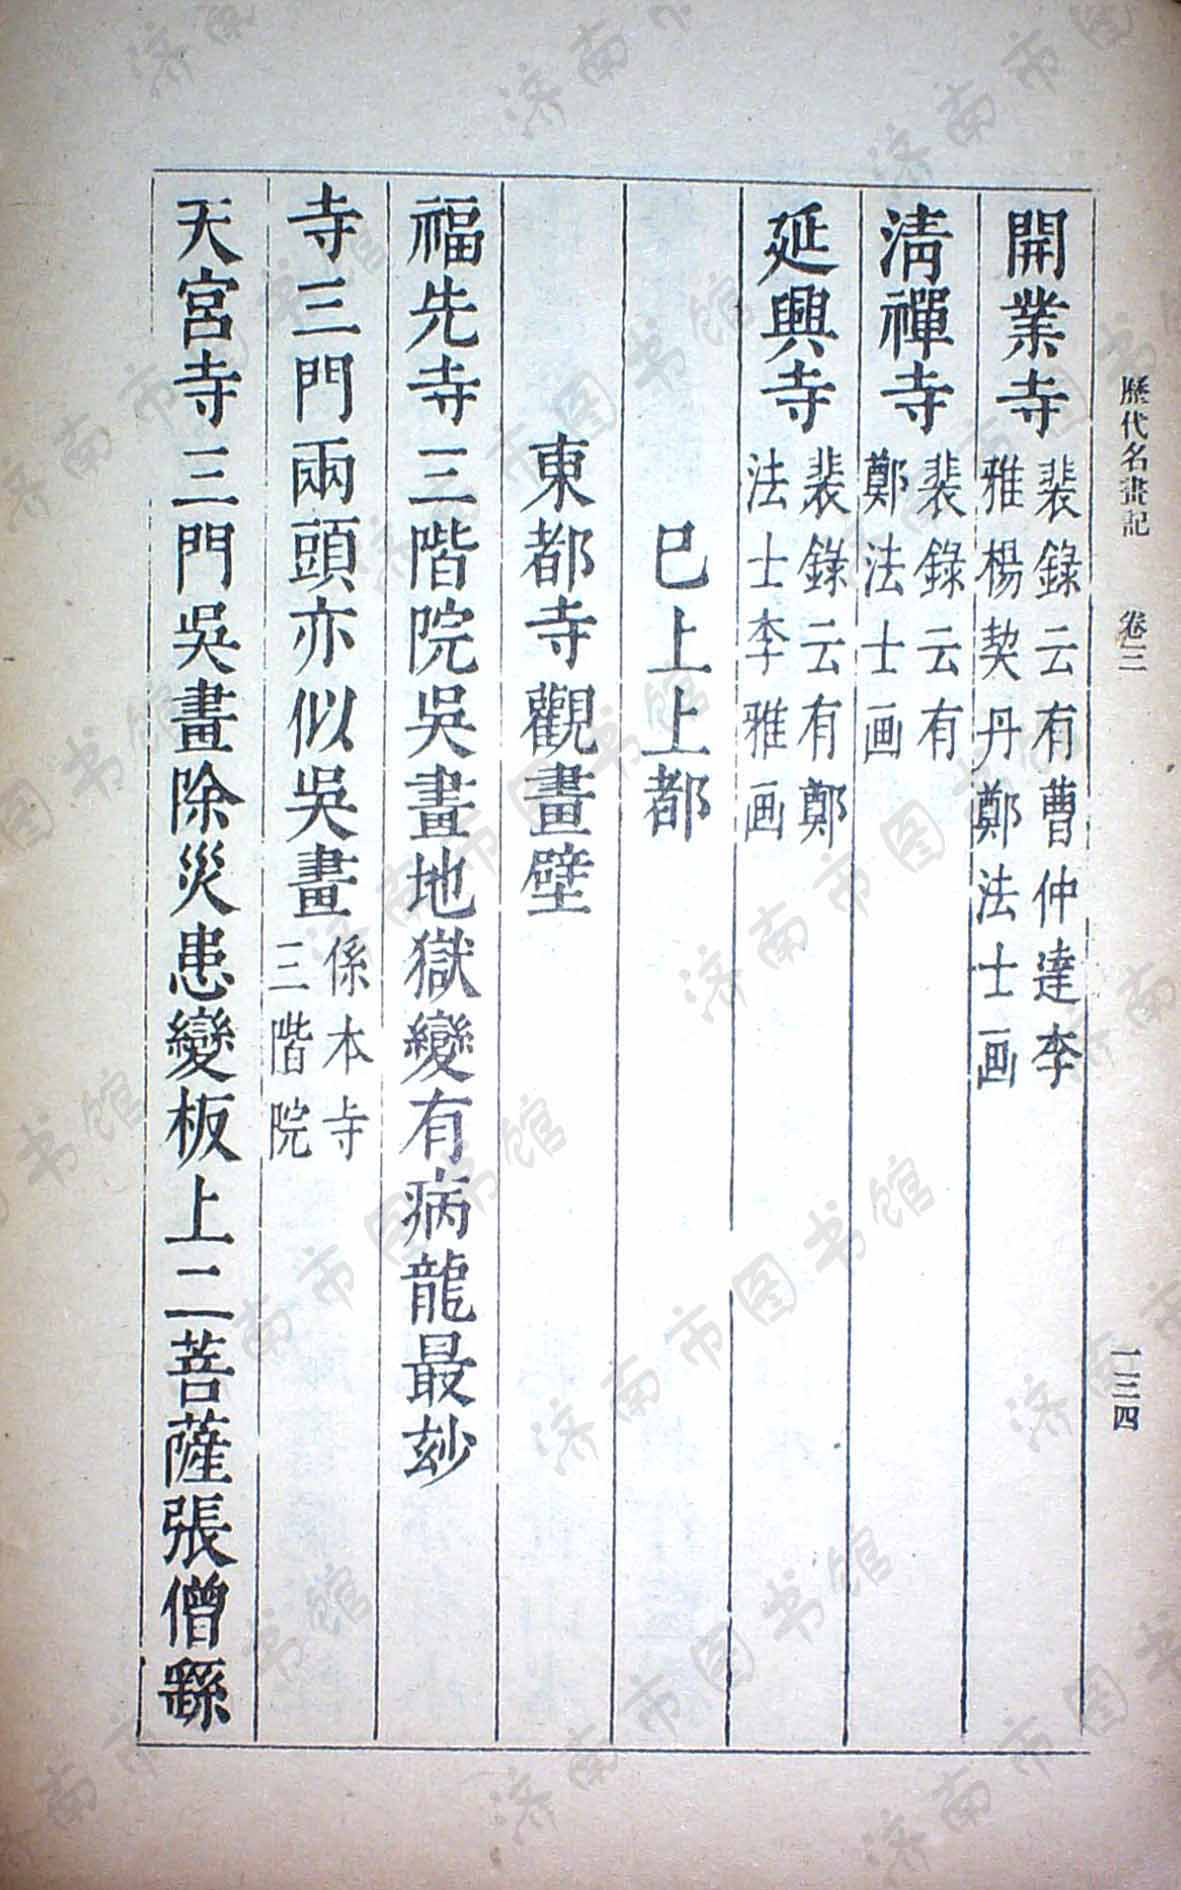 歷代名畫記 卷三 一三四
開業寺 裴錄云有曹仲達李
雅楊契丹鄭法士画
淸禪寺 裴錄云有
鄭法士画
延興寺 裴錄云有鄭
法士李雅画
巳上上都
東都寺觀畫壁
福先寺三階院吳畫地獄變有病龍最玅
寺三門兩頭亦似吳畫 係本寺
三階院
天宮寺三門吳畫除災患變板上二菩薩張僧繇
济南市图书馆